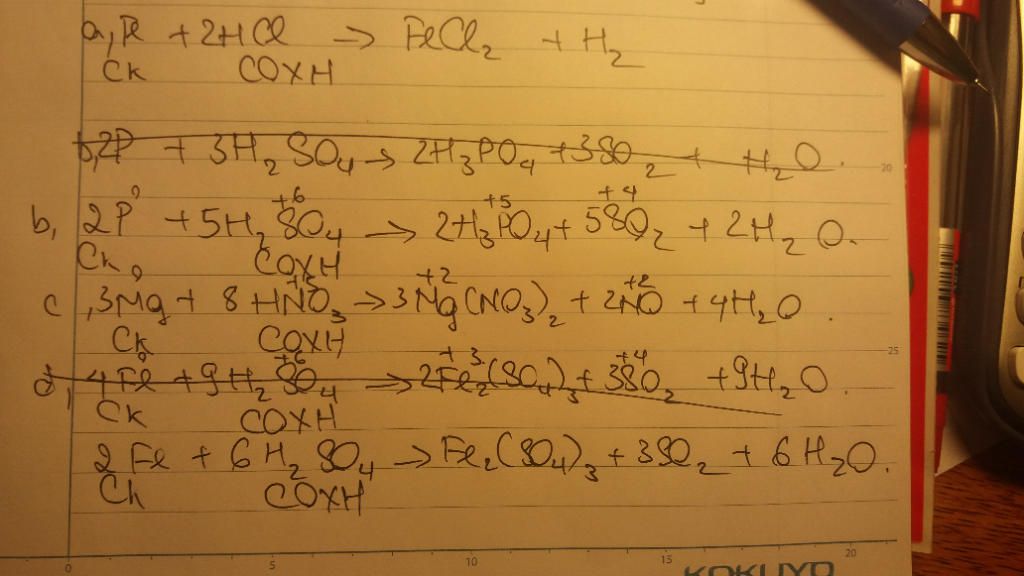 a, Fe + 2HCl → FeCl₂ + H₂
Ck COXH
b, 2P + 3H₂SO₄ → 2H₃PO₄ + 3SO₂ + H₂O.
20
0 +6 +5 +4
b, 2P + 5H₂SO₄ → 2H₃PO₄ + 5SO₂ + 2H₂O.
Ck COXH
0 +5 +2 +2
c, 3Mg + 8HNO₃ → 3Mg(NO₃)₂ + 2NO + 4H₂O.
Ck COXH
25
0 +6 +3 +4
d, 4Fe + 9H₂SO₄ → 2Fe₂(SO₄)₃ + 3SO₂ + 9H₂O.
Ck COXH
2Fe + 6H₂SO₄ → Fe₂(SO₄)₃ + 3SO₂ + 6H₂O.
Ck COXH
0 5 10 15 20
KOKUYO